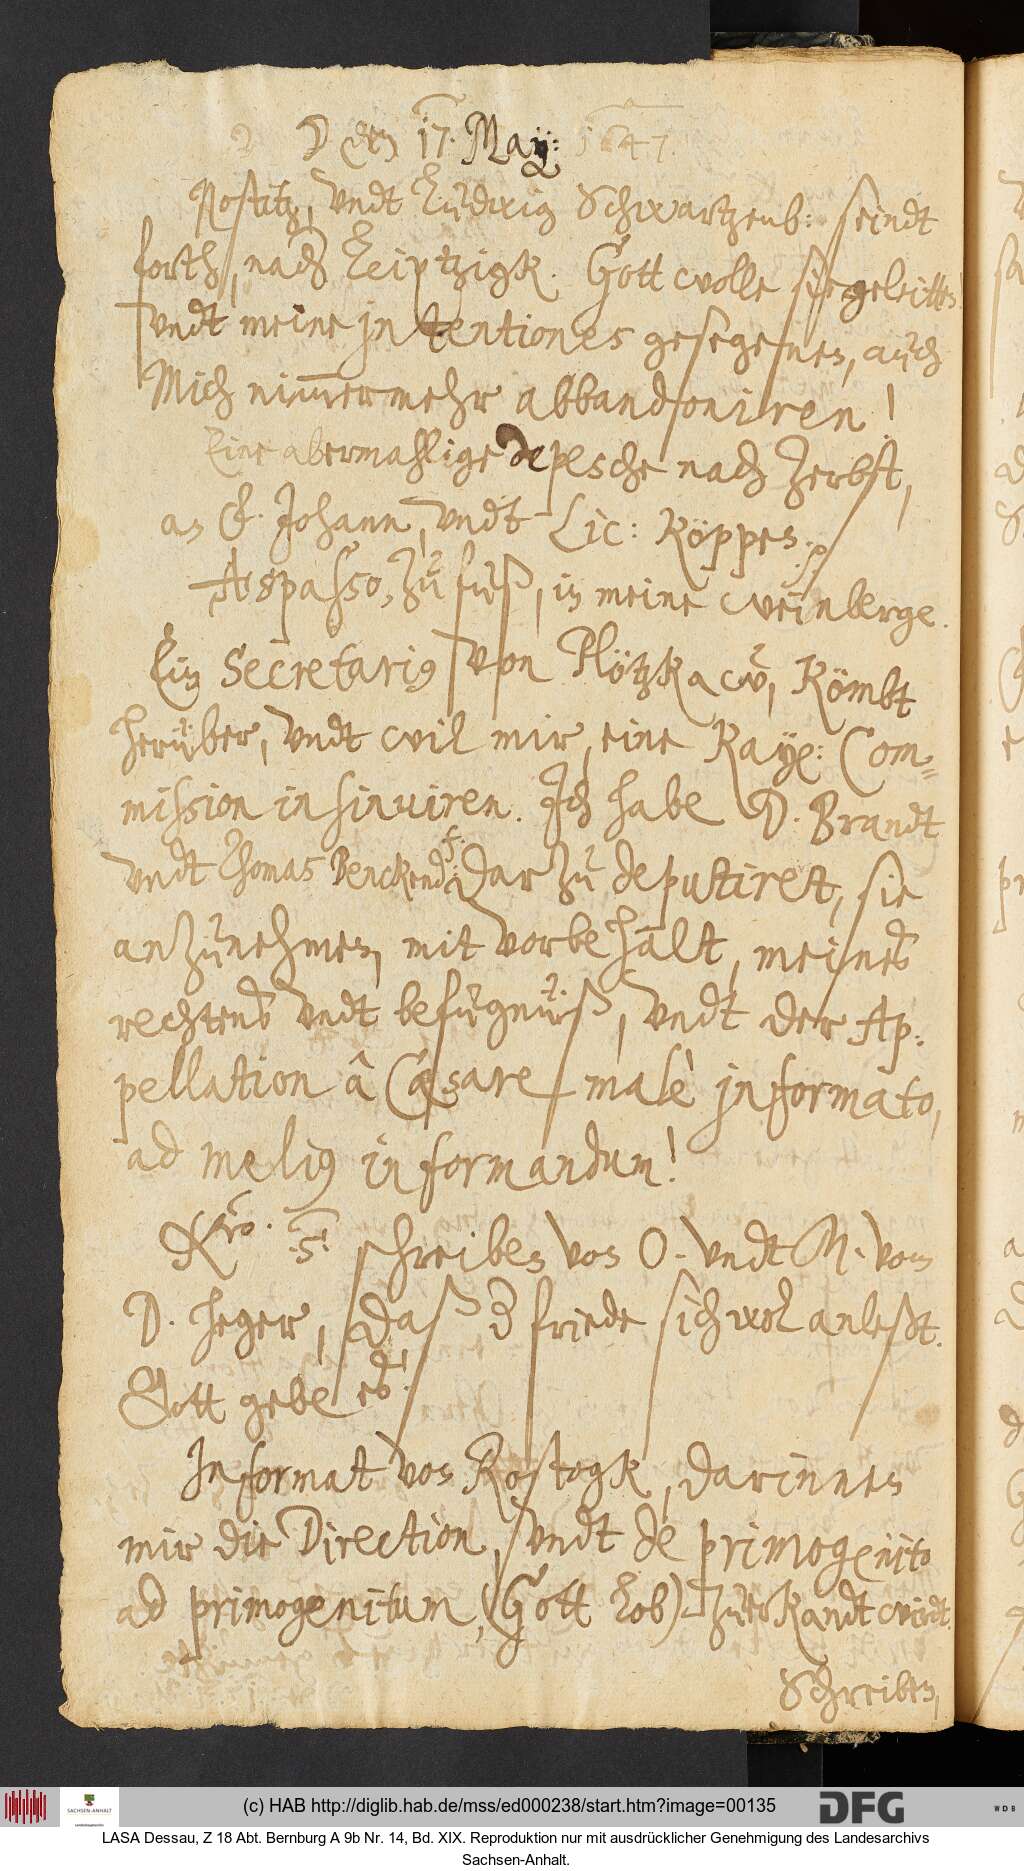 ☽ den 17. May: 1647.
Nostitz, vndt Ludwig Schwartzenb: seindt
forth, nach Leiptzigk. Gott wolle sie geleitten
vndt meine jntentiones gesegenen, auch
Mich nim̅ermehr abbandoniren!
Eine abermahlige depesche nach Zerbst,
an C. Johann, vndt Lic: Köppen.
A spasso, zu fuß, in meine weinberge.
Ein Secretarius von Plötzkaw, Kömbt
herüber, vndt wil mir, eine Kaye: Com-
mission insinuiren. Ich habe D. Brandt
vndt Thomas Benckend: dar zu deputiret, sie
anzunehmen, mit vorbehalt, meines
rechtens vndt befugnüß, vndt der Ap:
pellation â Cæsare malè jnformato,
ad melius informandum!
Xbro. 5. schreiben von O. vndt M. vom
D. Heger, daß der friede sich wol anleßt.
Gott gebe es!
Informat von Rostogk, darinnen
mir die Direction, vndt de primogenito
ad primogenitum, (Gott Lob) zuerkandt wirdt.
Schreiben,
(c) HAB http://diglib.hab.de/mss/ed000238/start.htm?image=00135
SACHSEN-ANHALT
DFG
WDB
LASA Dessau, Z 18 Abt. Bernburg A 9b Nr. 14, Bd. XIX. Reproduktion nur mit ausdrücklicher Genehmigung des Landesarchivs
Sachsen-Anhalt.